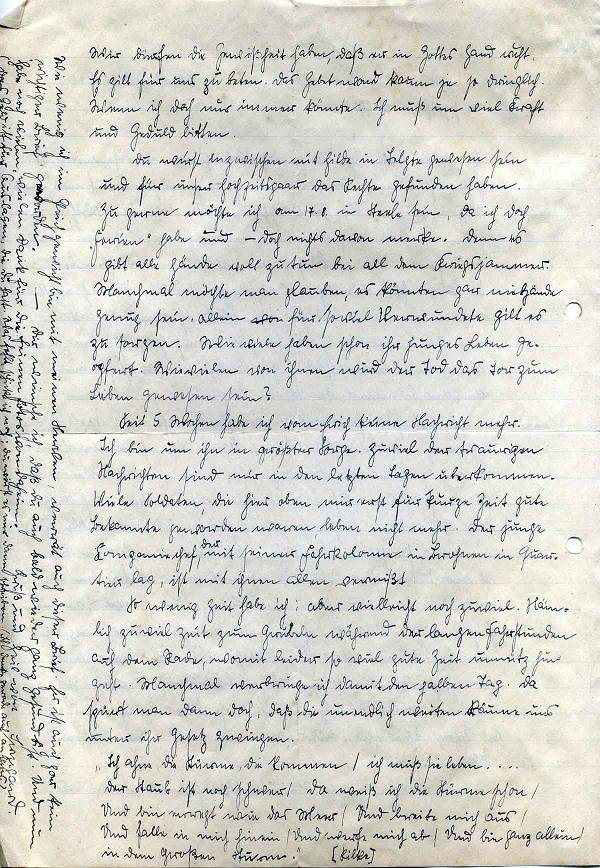 Wir dürfen die Gewißheit haben, daß er in Gottes Hand ruht.
Es gilt für uns zu beten. Das Gebet ward kaum je so dringlich.
Wenn ich doch nur immer könnte. Ich muß um viel Kraft
und Geduld bitten.
Du wirst inzwischen mit Hilde in Telgte gewesen sein
und für unser Hochzeitspaar das Rechte gefunden haben.
Zu gerne möchte ich am 17.8. in Steele sein, da ich doch
Ferien" habe und – doch nichts davon merke. Denn es
gibt alle Hände voll zu tun bei all dem Kriegsjammer.
Manchmal möchte man glauben, es könnten gar nicht Hände
genug sein. Allein für soviel Verwundete gilt es
zu sorgen. Wie viele haben schon ihr junges Leben ge-
opfert. Wievielen von ihnen wird der Tod das Tor zum
Leben gewesen sein?
Seit 5 Wochen habe ich von keine Nachricht mehr.
Ich bin um ihn in größter Sorge. Zuviel der traurigen
Nachrichten sind mir in den letzten Tagen überkommen.
Viele Soldaten, die hier oben mir erst für kurze Zeit gute
Bekannte geworden waren leben nicht mehr. Der junge
Kompaniechef, der mit seiner Fahrkolonne in in Quar-
tier lag, ist mit ihnen allen vermißt
So wenig Zeit habe ich; aber vielleicht noch zuviel. Näm-
lich zuviel Zeit zum Grübeln während der langen Fahrstunden
auf dem Rade, womit leider so viel gute Zeit unnütz hin-
geht. Manchmal verbringe ich damit den halben Tag. Da
spürt man dann doch, daß die unendlich weiten Räume uns
unter ihr Gesetz zwingen.
„Ich ahne die Stürme, die kommen / ich muß sie leben . . . .
der Staub ist noch schwer / da weiß ich die Stürme schon /
Und bin erregt wie das Meer / Und breite mich aus /
Und falle in mich hinein / Und werfe mich ab / Und bin ganz allein /
in dem Großen Sturm." [Rilke]
Wie wenig ich im Gleichgewicht bin mit meinen Stunden, verrät auch dieser Brief. Es ist auch gar kein
richtiger Brief geworden. — Dir wünsche ich, daß Du auch bald wieder ganz gesund bist. Und nun
habe noch recht vielen Dank für die feinen